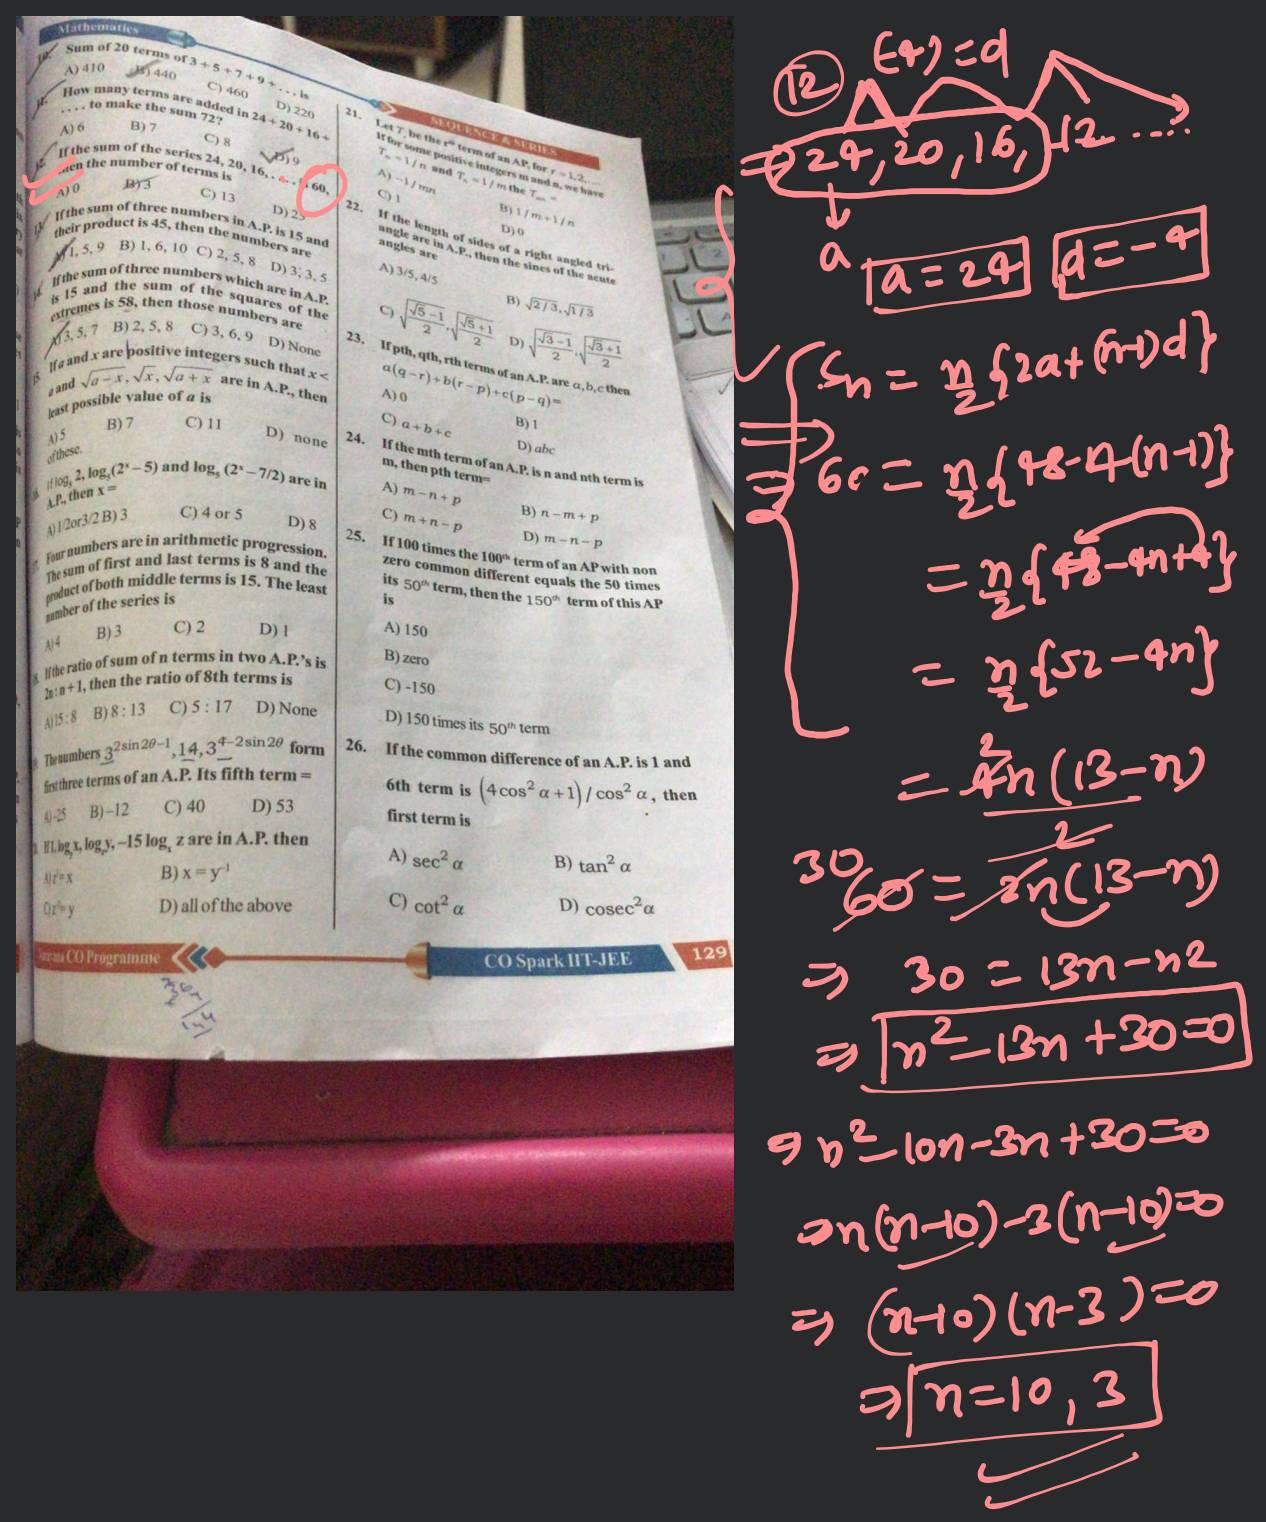 Mathematics
10. Sum of 20 terms of 3 + 5 + 7 + 9 + . . . is
A) 410 B) 440 C) 460 D) 220
11. How many terms are added in 24 + 20 + 16 +
. . . . to make the sum 72?
A) 6 B) 7 C) 8 D) 9
12. If the sum of the series 24, 20, 16, . . . . 60,
then the number of terms is
A) 0 B) 3 C) 13 D) 23
13. If the sum of three numbers in A.P. is 15 and
their product is 45, then the numbers are
A) 1, 5, 9 B) 1, 6, 10 C) 2, 5, 8 D) 3, 3, 5
14. If the sum of three numbers which are in A.P.
is 15 and the sum of the squares of the
extremes is 58, then those numbers are
A) 3, 5, 7 B) 2, 5, 8 C) 3, 6, 9 D) None
15. If a and x are positive integers such that x <
a and √a−x, √x, √a+x are in A.P., then
least possible value of a is
A) 5 B) 7 C) 11 D) none
of these.
If log₃ 2, log₃(2ˣ − 5) and log₃ (2ˣ − 7/2) are in
A.P., then x =
A) 1/2 or 3/2 B) 3 C) 4 or 5 D) 8
Four numbers are in arithmetic progression.
The sum of first and last terms is 8 and the
product of both middle terms is 15. The least
number of the series is
A) 4 B) 3 C) 2 D) 1
If the ratio of sum of n terms in two A.P.'s is
2n : n + 1, then the ratio of 8th terms is
A) 15 : 8 B) 8 : 13 C) 5 : 17 D) None
The numbers 3^(2 sin 2θ−1), 14, 3^(4−2 sin 2θ) form
first three terms of an A.P. Its fifth term =
A) -25 B) −12 C) 40 D) 53
If 1, log x, log y, −15 logₓ z are in A.P. then
A) z³ = x B) x = y⁻¹
C) z³ = y D) all of the above
CO Programme
SEQUENCE & SERIES
21. Let Tᵣ be the rᵗʰ term of an AP, for r = 1,2,....
If for some positive integers m and n, we have
Tₘ = 1/n and Tₙ = 1/m the Tₘₙ =
A) −1/mn B) 1/m + 1/n
C) 1 D) 0
22. If the length of sides of a right angled tri-
angle are in A.P., then the sines of the acute
angles are
A) 3/5, 4/5 B) √2/3, √1/3
C) √((√5 −1)/2), √((√5 +1)/2) D) √((√3 −1)/2), √((√3 +1)/2)
23. If pth, qth, rth terms of an A.P. are a, b, c then
a(q − r) + b(r − p) + c(p − q) =
A) 0 B) 1
C) a + b + c D) abc
24. If the mth term of an A.P. is n and nth term is
m, then pth term=
A) m − n + p B) n − m + p
C) m + n − p D) m − n − p
25. If 100 times the 100ᵗʰ term of an AP with non
zero common different equals the 50 times
its 50ᵗʰ term, then the 150ᵗʰ term of this AP
is
A) 150
B) zero
C) -150
D) 150 times its 50ᵗʰ term
26. If the common difference of an A.P. is 1 and
6th term is (4 cos² α + 1) / cos² α, then
first term is
A) sec² α B) tan² α
C) cot² α D) cosec² α
CO Spark IIT-JEE 129
12 (-4) = d
⇒ 24, 20, 16, 12 ....
a
a = 24 d = −4
Sn = n/2 {2a + (n−1)d}
⇒ 60 = n/2 {48 − 4(n−1)}
= n/2 {48 − 4n + 4}
= n/2 {52 − 4n}
= 2 4n (13 − n)
2
30 60 = 2n (13 − n)
⇒ 30 = 13n − n2
⇒ n² − 13n + 30 = 0
⇒ n² − 10n − 3n + 30 = 0
⇒ n(n−10) − 3(n−10) = 0
⇒ (n−10) (n−3) = 0
⇒ n = 10, 3